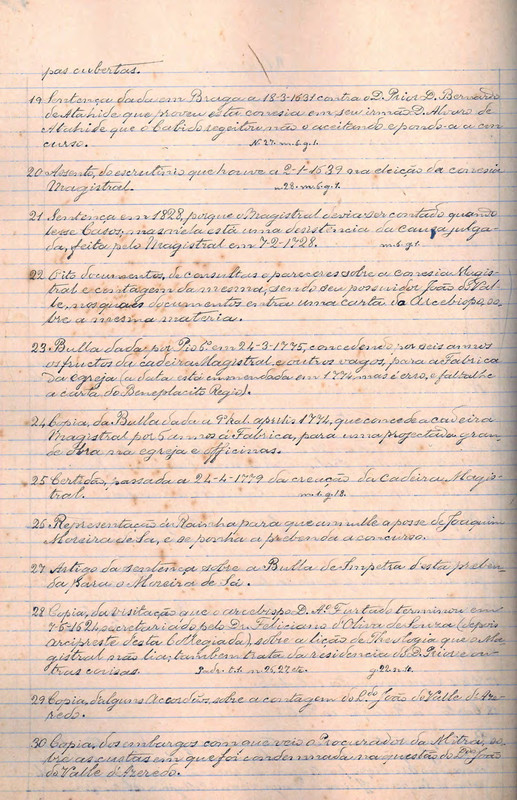 pas cubertas.
19 Sentença dada em Braga a 18-3-1631 contra o D. Prior D. Bernardo
de Atahide que proveu esta conesia em seu irmão D. Alvaro de
Atahide que o Cabido regeitou, não o aceitando e pondo-a a con
curso. Nº 27. m. 6. g. 1.
20 Assento, do escrutinio que houve a 2-1-1639 na eleição da conesia
Magistral. n. 28. m. 6. g. 1.
21 Sentença em 1828, porque o Magistral devia ser contado quando
lesse Casos, mas nela está uma desistencia da causa julga-
da, feita pelo Magistral em 7-2-1728. m. 6. g. 1.
22 Oito documentos, de consultas e pareceres sobre a conesia Magis-
tral e contagem da mesma, sendo seu possuidor João do Val-
le, nos quaes documentos entra uma carta do Arcebispo, so-
bre a mesma materia.
23 Bulla dada por Pio 6º em 24-3-1775, concedendo, por seis annos
os fructos da cadeira Magistral e outros vagos, para a Fabrica
da egreja (a data está emendada em 1774, mas é erro, e falta lhe
a carta do Beneplacito Regio).
24 Copia, da Bulla dada a 9 kal. aprilis 1774, que concede a cadeira
Magistral por 6 annos á Fabrica, para uma projectada gran-
de obra na egreja e officinas.
25 Certidão, passada a 24-4-1779 da creação da cadeira Magis-
tral. m. 6. g. 18.
26 Representação á Rainha para que annulle a posse de Joaquim
Moreira de Sá, e se ponha a prebenda a concurso.
27 Artigo da sentença sobre a Bulla de Impetra d'esta preben-
da para o Moreira de Sá.
28 Copia, da visitação que o arcebispo D. Aº Furtado terminou em
7-5-1624, secretariado pelo Dr. Feliciano d'Oliva de Souza (depois
arcipreste desta Collegiada), sobre a lição de Theologia que o Ma-
gistral não lia; tambem trata da residencia do D. Prior e ou-
tras coisas. n. 26, 27 etc. g. 22. n. 4.
29 Copia, d'alguns Accordãos, sobre a contagem do Ldo João do Valle d'Aze-
redo.
30 Copia, dos embargos com que veio o Procurador da Mitra, so-
bre as custas em que foi condemnada na questão do Ldo João
do Valle d'Azeredo.